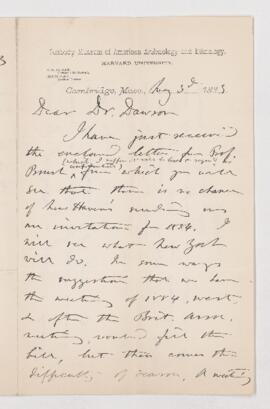 Peabody Museum of American Archæology and Ethnology,
HARVARD UNIVERSITY.
Cambridge, Mass., Aug 3d 1883
Dear Dr. Dawson
I have just received
the enclosed letter from Prof.
Brush from which you will
see that there is no chance
of New Haven's sending us
an invitation for 1884. I
will see what New York
will do. In some ways
the suggestion that we have
the meeting of 1884, west
& after the Brit. Asso.
meeting, would fill the
bill, but then comes the
difficulty of season. A meeting